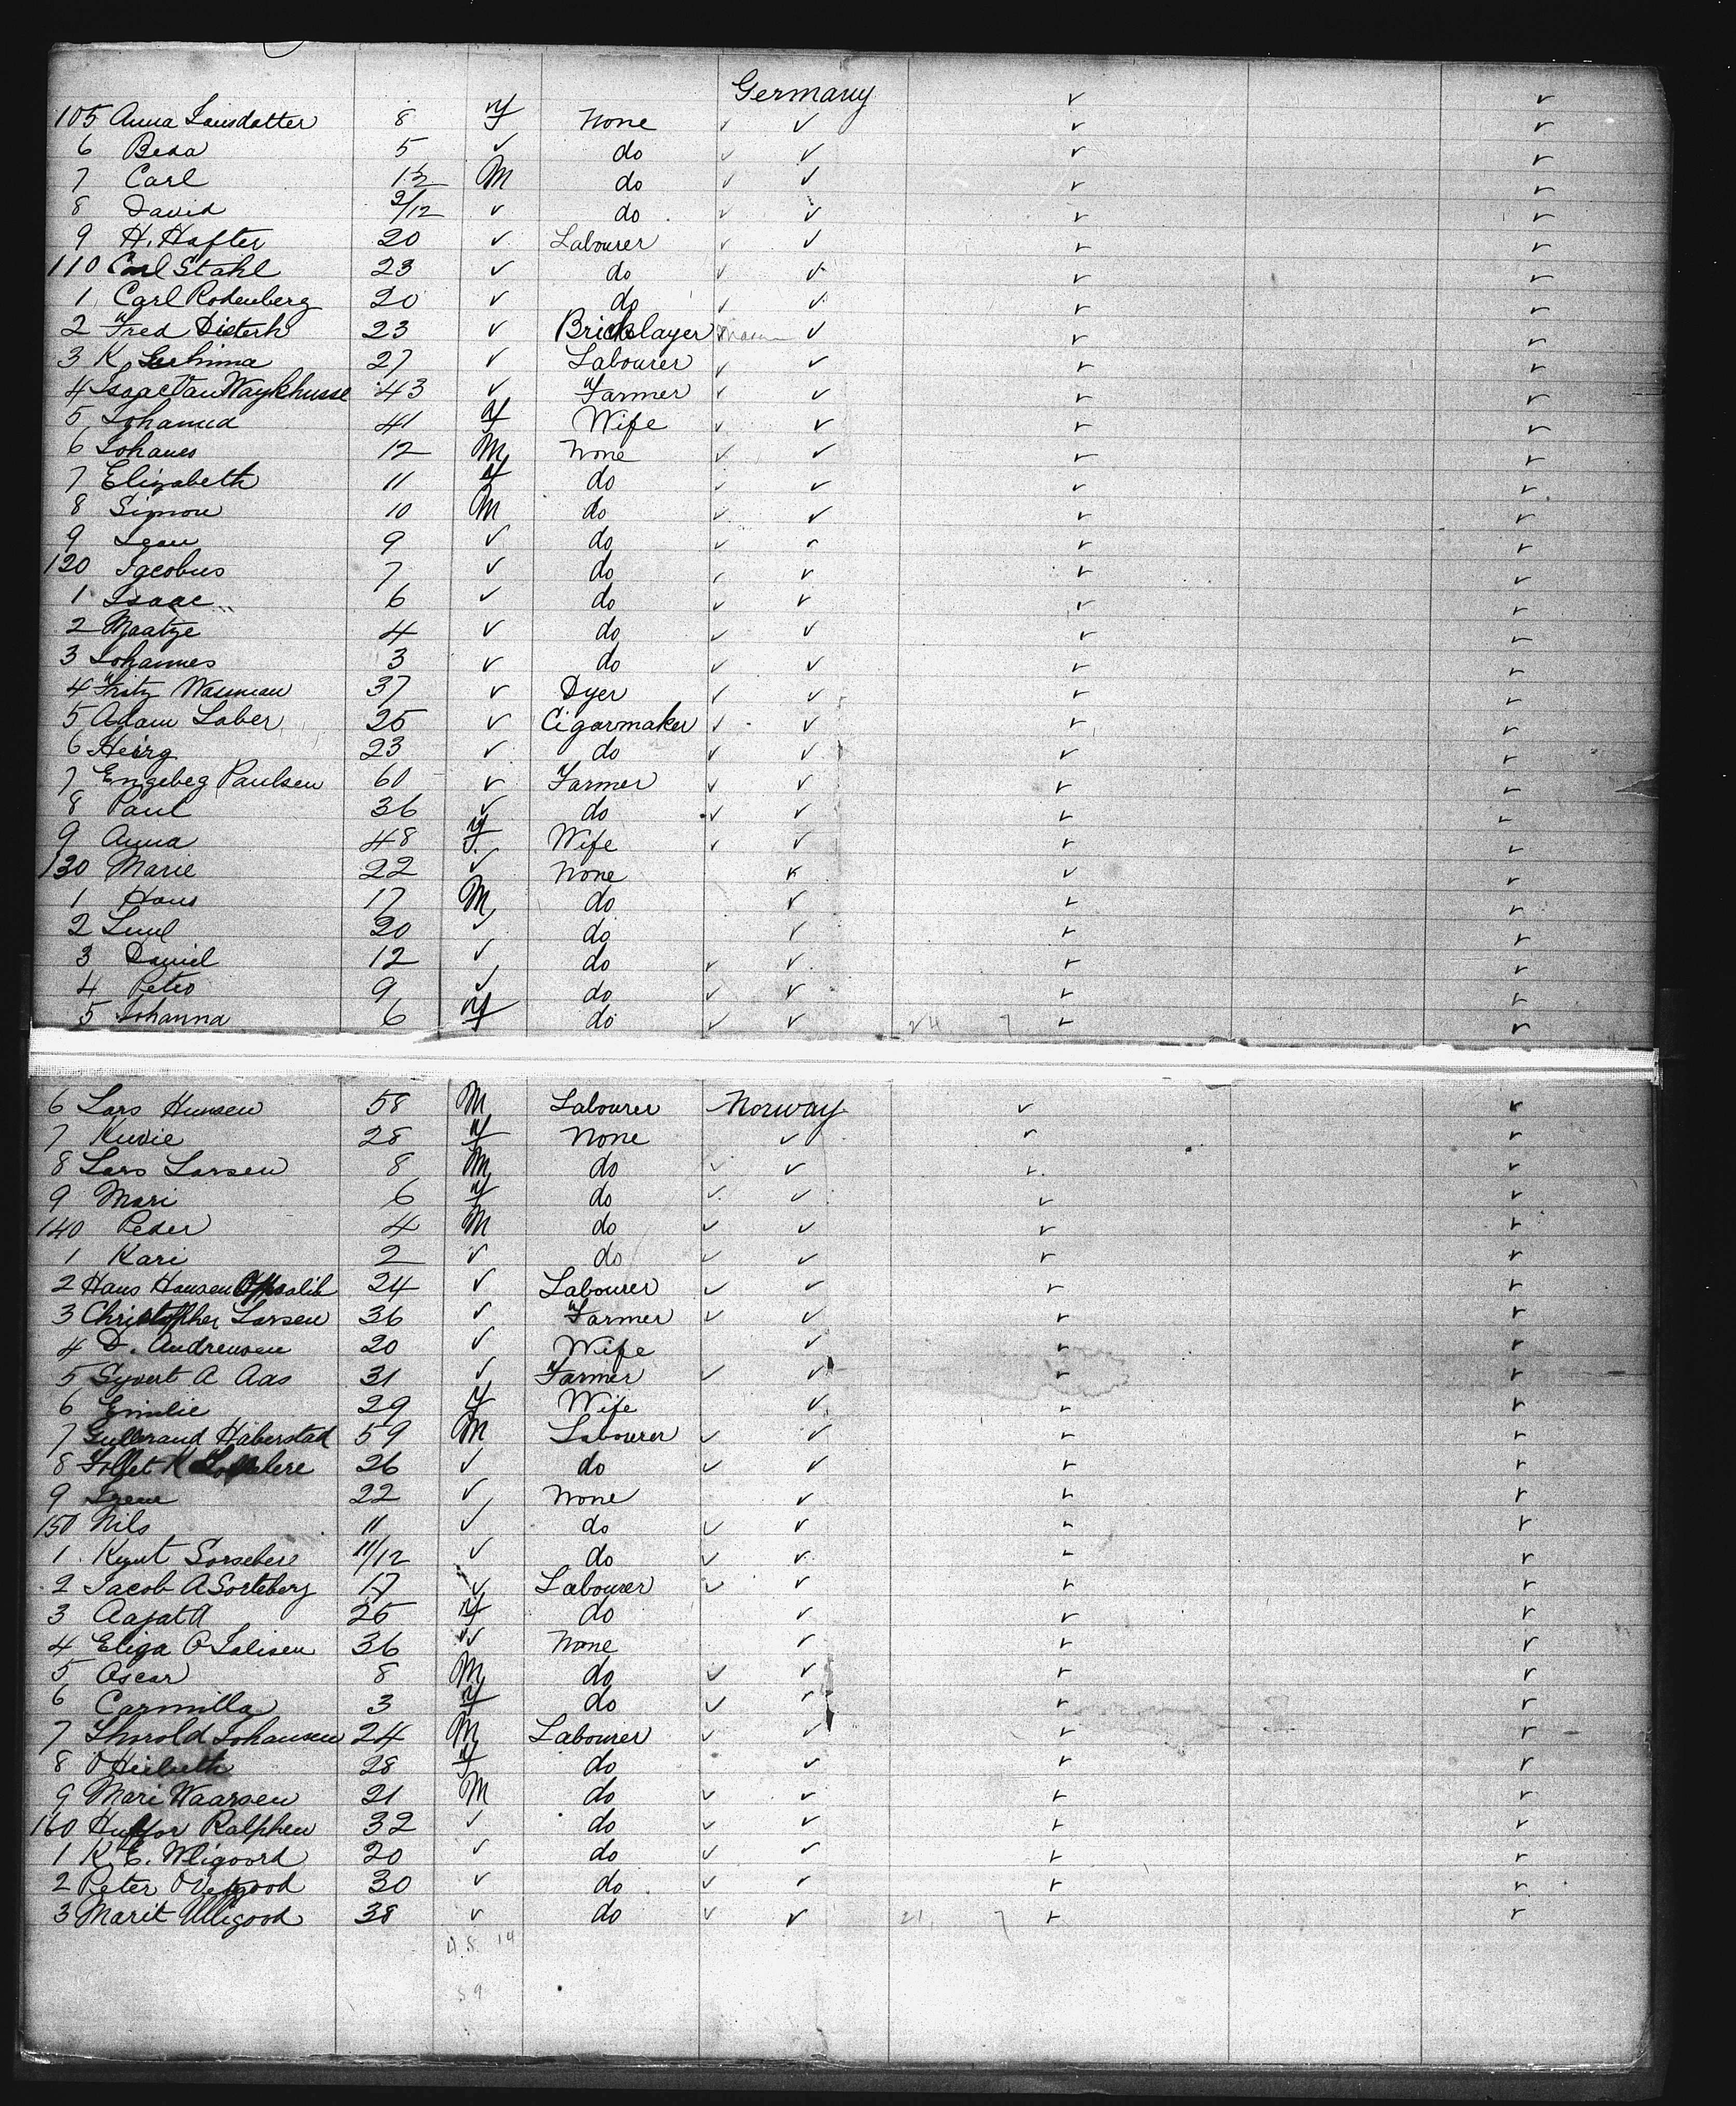 Germany ✓ ✓
105 Anna Larsdatter 8 F None ✓ ✓ ✓ ✓
6 Beda 5 ✓ do ✓ ✓ ✓ ✓
7 Carl 1½ M do ✓ ✓ ✓ ✓
8 David 2/12 ✓ do ✓ ✓ ✓ ✓
9 H. Hafter 20 ✓ Labourer ✓ ✓ ✓ ✓
110 Carl Stahl 23 ✓ do ✓ ✓ ✓ ✓
1 Carl Rodenberg 20 ✓ do ✓ ✓ ✓ ✓
2 Fred Disterh 23 ✓ Bricklayer ✓ ✓ ✓
3 K 27 ✓ Labourer ✓ ✓ ✓ ✓
4 Isaac Van Waykhusse 43 ✓ Farmer ✓ ✓ ✓ ✓
5 Johanna 41 F Wife ✓ ✓ ✓ ✓
6 Johanes 12 M None ✓ ✓ ✓ ✓
7 Elizabeth 11 F do ✓ ✓ ✓ ✓
8 Simon 10 M do ✓ ✓ ✓ ✓
9 Jean 9 ✓ do ✓ ✓ ✓ ✓
120 Jacobus 7 ✓ do ✓ ✓ ✓ ✓
1 Isaac 6 ✓ do ✓ ✓ ✓ ✓
2 Maatze 4 ✓ do ✓ ✓ ✓ ✓
3 Johannes 3 ✓ do ✓ ✓ ✓ ✓
4 Fritz Wasman 37 ✓ Dyer ✓ ✓ ✓ ✓
5 Adam Laber 25 ✓ Cigarmaker ✓ ✓ ✓ ✓
6 Heirg 23 ✓ do ✓ ✓ ✓ ✓
7 Engebeg Paulsen 60 ✓ Farmer ✓ ✓ ✓ ✓
8 Paul 36 ✓ do ✓ ✓ ✓ ✓
9 Anna 48 F Wife ✓ ✓ ✓ ✓
130 Marie 22 ✓ None ✓ ✓ ✓
1 Hans 17 M do ✓ ✓ ✓
2 20 ✓ do ✓ ✓ ✓
3 Daniel 12 ✓ do ✓ ✓ ✓ ✓
4 Peteo 9 ✓ do ✓ ✓ ✓ ✓
5 Johanna 6 F do ✓ ✓ 24 7 ✓ ✓
6 Lars Hunsen 58 M Labourer Norway ✓ ✓
7 Kuvie 28 F None ✓ ✓ ✓
8 Lars Larsen 8 M do ✓ ✓ ✓ ✓
9 Mari 6 F do ✓ ✓ ✓ ✓
140 Peder 4 M do ✓ ✓ ✓ ✓
1 Kari 2 ✓ do ✓ ✓ ✓ ✓
2 Hans Hansen 24 ✓ Labourer ✓ ✓ ✓ ✓
3 Christopher Larsen 36 ✓ Farmer ✓ ✓ ✓ ✓
4 D. Andrensen 20 ✓ Wife ✓ ✓ ✓
5 Syvert A Aas 31 ✓ Farmer ✓ ✓ ✓ ✓
6 Emilie 29 F Wife ✓ ✓ ✓
7 Gulbrand Haberstad 59 M Labourer ✓ ✓ ✓ ✓
8 K 26 ✓ do ✓ ✓ ✓ ✓
9 22 ✓ None ✓ ✓ ✓
150 Nils 11 ✓ do ✓ ✓ ✓ ✓
1 Knut Sorsebere 11/12 ✓ do ✓ ✓ ✓ ✓
2 Jacob A Sorteberg 17 ✓ Labourer ✓ ✓ ✓ ✓
3 Aagat A 25 F do ✓ ✓ ✓
4 Eliza O Salisen 36 ✓ None ✓ ✓ ✓
5 Oscar 8 M do ✓ ✓ ✓ ✓
6 Carmilla 3 F do ✓ ✓ ✓ ✓
7 Thorold Johansen 24 M Labourer ✓ ✓ ✓ ✓
8 28 F do ✓ ✓ ✓
9 Mari Waarsen 21 M do ✓ ✓ ✓ ✓
160 Ralphen 32 ✓ do ✓ ✓ ✓ ✓
1 K E. Wligoord 20 ✓ do ✓ ✓ ✓ ✓
2 Peter 30 ✓ do ✓ ✓ ✓ ✓
3 Marit Ulligood 38 ✓ do ✓ ✓ 21 7 ✓ ✓
14
59